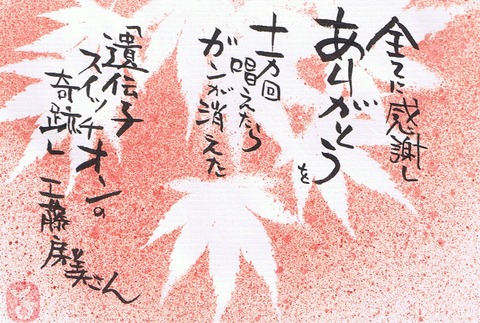 全てに感謝し
ありがとうを
十万回
唱えたら
ガンが消えた
「遺伝子
スイッチオンの
奇跡」
工藤房美さん